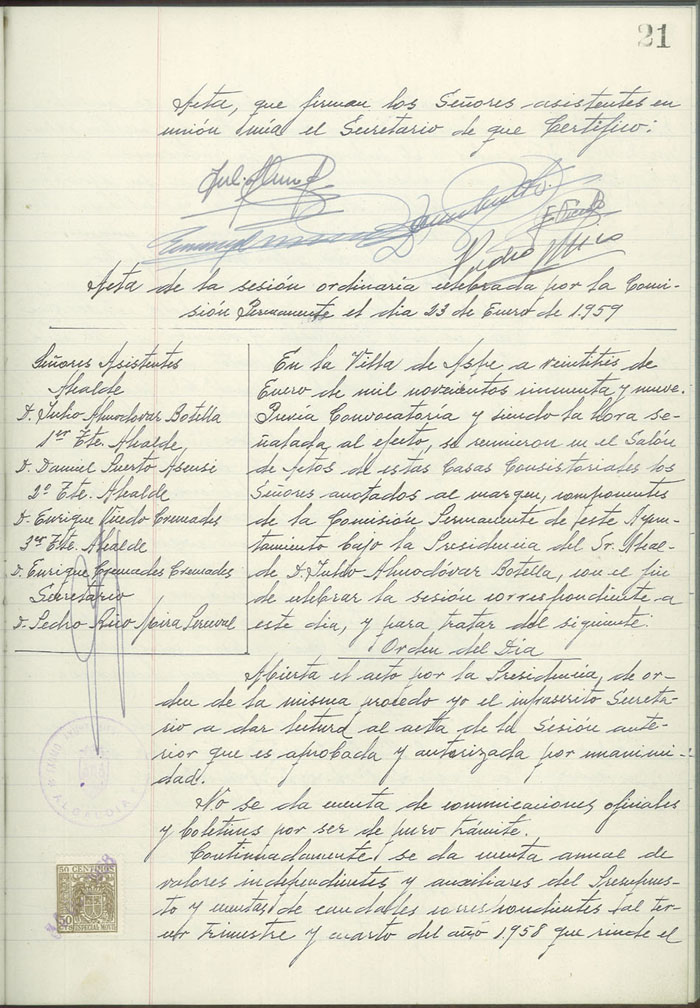 21
Acta, que firman los Señores asistentes en
unión mía el Secretario de que Certifico:
Pedro Rico
Acta de la sesión ordinaria celebrada por la Comi-
sión Permanente el dia 23 de Enero de 1959
Señores Asistentes
Alcalde
D. Julio Almodóvar Botella
1er Tte. Alcalde
D. Daniel Puerto Asensi
2º Tte. Alcalde
D. Enrique Cremades
3er Tte. Alcalde
D. Enrique Cremades Cremades
Secretario
D. Pedro Rico Mira Perceval
En la Villa de Aspe a veintitis de
Enero de mil novecientos cincuenta y nueve.
Previa Convocatoría y siendo la hora se-
ñalada al efecto, se reunieron en el Salón
de Actos de estas Casas Consistoriales los
Señores anotados al margen, componentes
de la Comisión Permanente de este Ayun-
tamiento bajo la Presidencia del Sr. Alcal-
de D. Julio Almodóvar Botella, con el fin
de celebrar la sesión correspondiente a
este dia, y para tratar del siguiente:
Orden del Dia
Abierta el acto por la Presidencia, de or-
den de la misma procedo yo el infrascrito Secreta-
rio a dar lectura al acta de la Sesión ante-
rior que es aprobada y autorizada por unanimi-
dad.
No se da cuenta de comunicaciones oficiales
y Boletines por ser de puro trámite.
Continuadamente se da cuenta anual de
valores independientes y auxiliares del Presupues-
to y cuentas de caudales correspondientes al ter-
cer trimestre y cuarto del año 1.958 que rinde el
ALCALDIA
50 CENTIMOS
50
ESPECIAL MOVIL